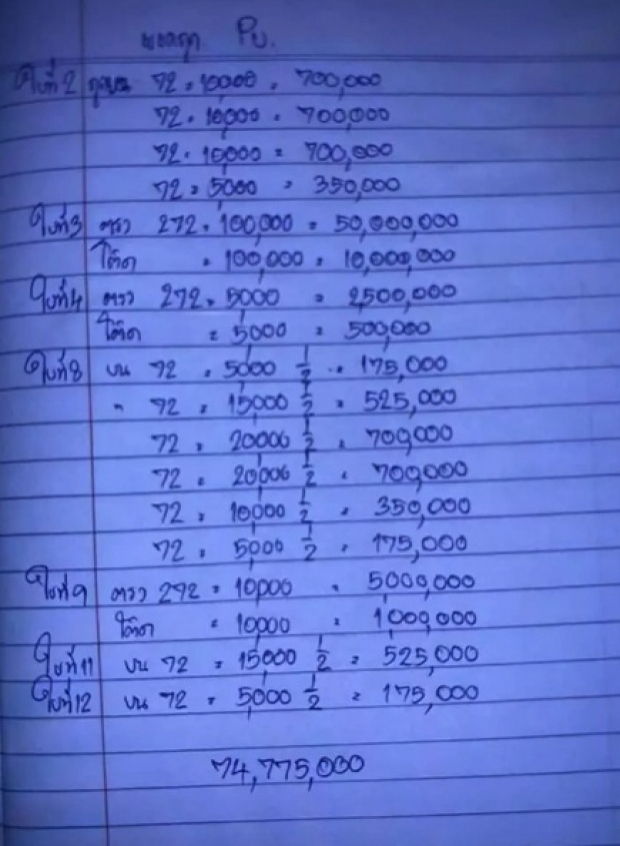 ยอดถูก Pu.
ใบที่2 ถูกบน 72 = 10,000 = 700,000
72 = 10,000 = 700,000
72 = 10,000 = 700,000
72 = 5,000 = 350,000
ใบที่3 ตรง 272 = 100,000 = 50,000,000
โต๊ด = 100,000 = 10,000,000
ใบที่4 ตรง 272 = 5000 = 2,500,000
โต๊ด = 5000 = 500,000
ใบที่8 บน 72 = 5000 1/2 = 175,000
" 72 = 15000 1/2 = 525,000
72 = 20000 1/2 = 700,000
72 = 20000 1/2 = 700,000
72 = 10000 1/2 = 350,000
72 = 5,000 1/2 = 175,000
ใบที่9 ตรง 272 = 10,000 = 5,000,000
โต๊ด = 10,000 = 1,000,000
ใบที่11 บน 72 = 15,000 1/2 = 525,000
ใบที่12 บน 72 = 5,000 1/2 = 175,000
74,775,000